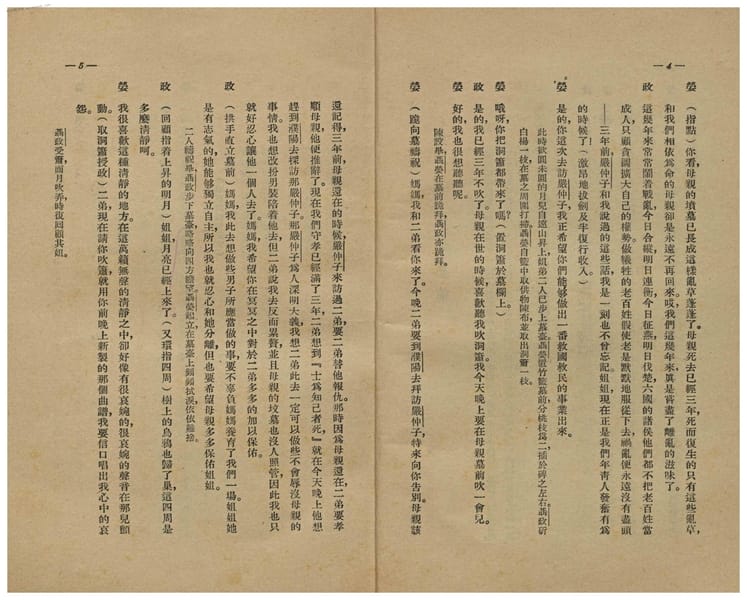 — 4 —
嫈 (指點)你看母親的墳墓已長成這樣亂草蓬蓬了。母親死去已經三年死而復生的只有這些亂草,
和我們相依爲命的母親卻是永遠不再回來。哎我們這幾年來眞是嘗盡了離亂的滋味了。
政 這幾年來常常鬧着戰亂今日合縱,明日連衡今日征燕明日伐楚六國的諸侯他們都不把老百姓當
成人,只顧貪圖擴大自己的權勢。做犧牲的老百姓假使老是默默地服從下去禍亂便永遠沒有盡頭
——三年前嚴仲子和我說過的這些話我是一刻也不曾忘記。姐姐,現在正是我們年靑人發奮有爲
的時候了!(激昂地拔劍及半復行收入)
嫈 是的你這次去訪嚴仲子我正希望你們能够做出一番救國救民的事業出來。
此時欲圓未圓的月兒自遠山昇上姐弟二人已步上墓臺。聶嫈置竹籃墓前分桃枝爲二插於碑之左右。聶政斫
白楊一枝在墓之周圍打掃。聶嫈自籃中取供物陳布並取出洞簫一枝。
嫈 哦呀,你把洞簫都帶來了嗎?(置洞簫於墓欄上。)
政 是的我已經三年不吹了。母親在世的時候,喜歡聽我吹洞簫。我今天晚上要在母親墓前吹一會兒。
嫈 好的我也很想聽聽呢。
陳設畢聶嫈在墓前跪拜。聶政亦跪拜。
嫈 (跪向墓禱祝)媽媽,我和二弟看你來了。今晚二弟要到濮陽去拜訪嚴仲子,特來向你告別。母親該
— 5 —
還記得,三年前母親還在的時候嚴仲子來訪過二弟,要二弟替他報仇。那時因爲母親還在,二弟要孝
順母親,他便推辭了。現在我們守孝已經滿了三年,二弟想到『士爲知己者死,』就在今天晚上他想
趕到濮陽去探訪那嚴仲子。那嚴仲子爲人深明大義,我想二弟此去一定可以做些不會辱沒母親的
事情。我也想改扮男裝陪着他去,但二弟說我去反而累贅,並且母親的坟墓也沒人照管。因此我也只
就好忍心讓他一個人去了。媽媽,我希望你在冥冥之中對於二弟多多的加以保佑。
政 (拱手直立墓前)媽媽,我此去想做些男子所應當做的事,要不辜負媽媽養育了我們一場。姐姐她
是有志氣的,她能够獨立自主,所以我也就忍心和她分離。但也要希望母親多多保佑姐姐。
二人禱祝畢聶政步下墓臺略略向四方瞻望聶嫈起立在墓臺上頻頻拭淚,依依難捨。
政 (回顧指着上昇的明月)姐姐,月亮已經上來了。(又環指四周)樹上的烏鴉也歸了巢,這四周是
多麼淸靜呵。
嫈 我很喜歡這種淸靜的地方。在這萬籟無聲的淸靜之中,卻好像有很哀婉的很哀婉的聲音在那兒顫
動。(取洞簫授政)二弟,現在請你吹簫,就用你前晚上新製的那個曲譜,我要信口唱出我心中的哀
怨。
聶政受簫面月吹弄時復回顧其姐。